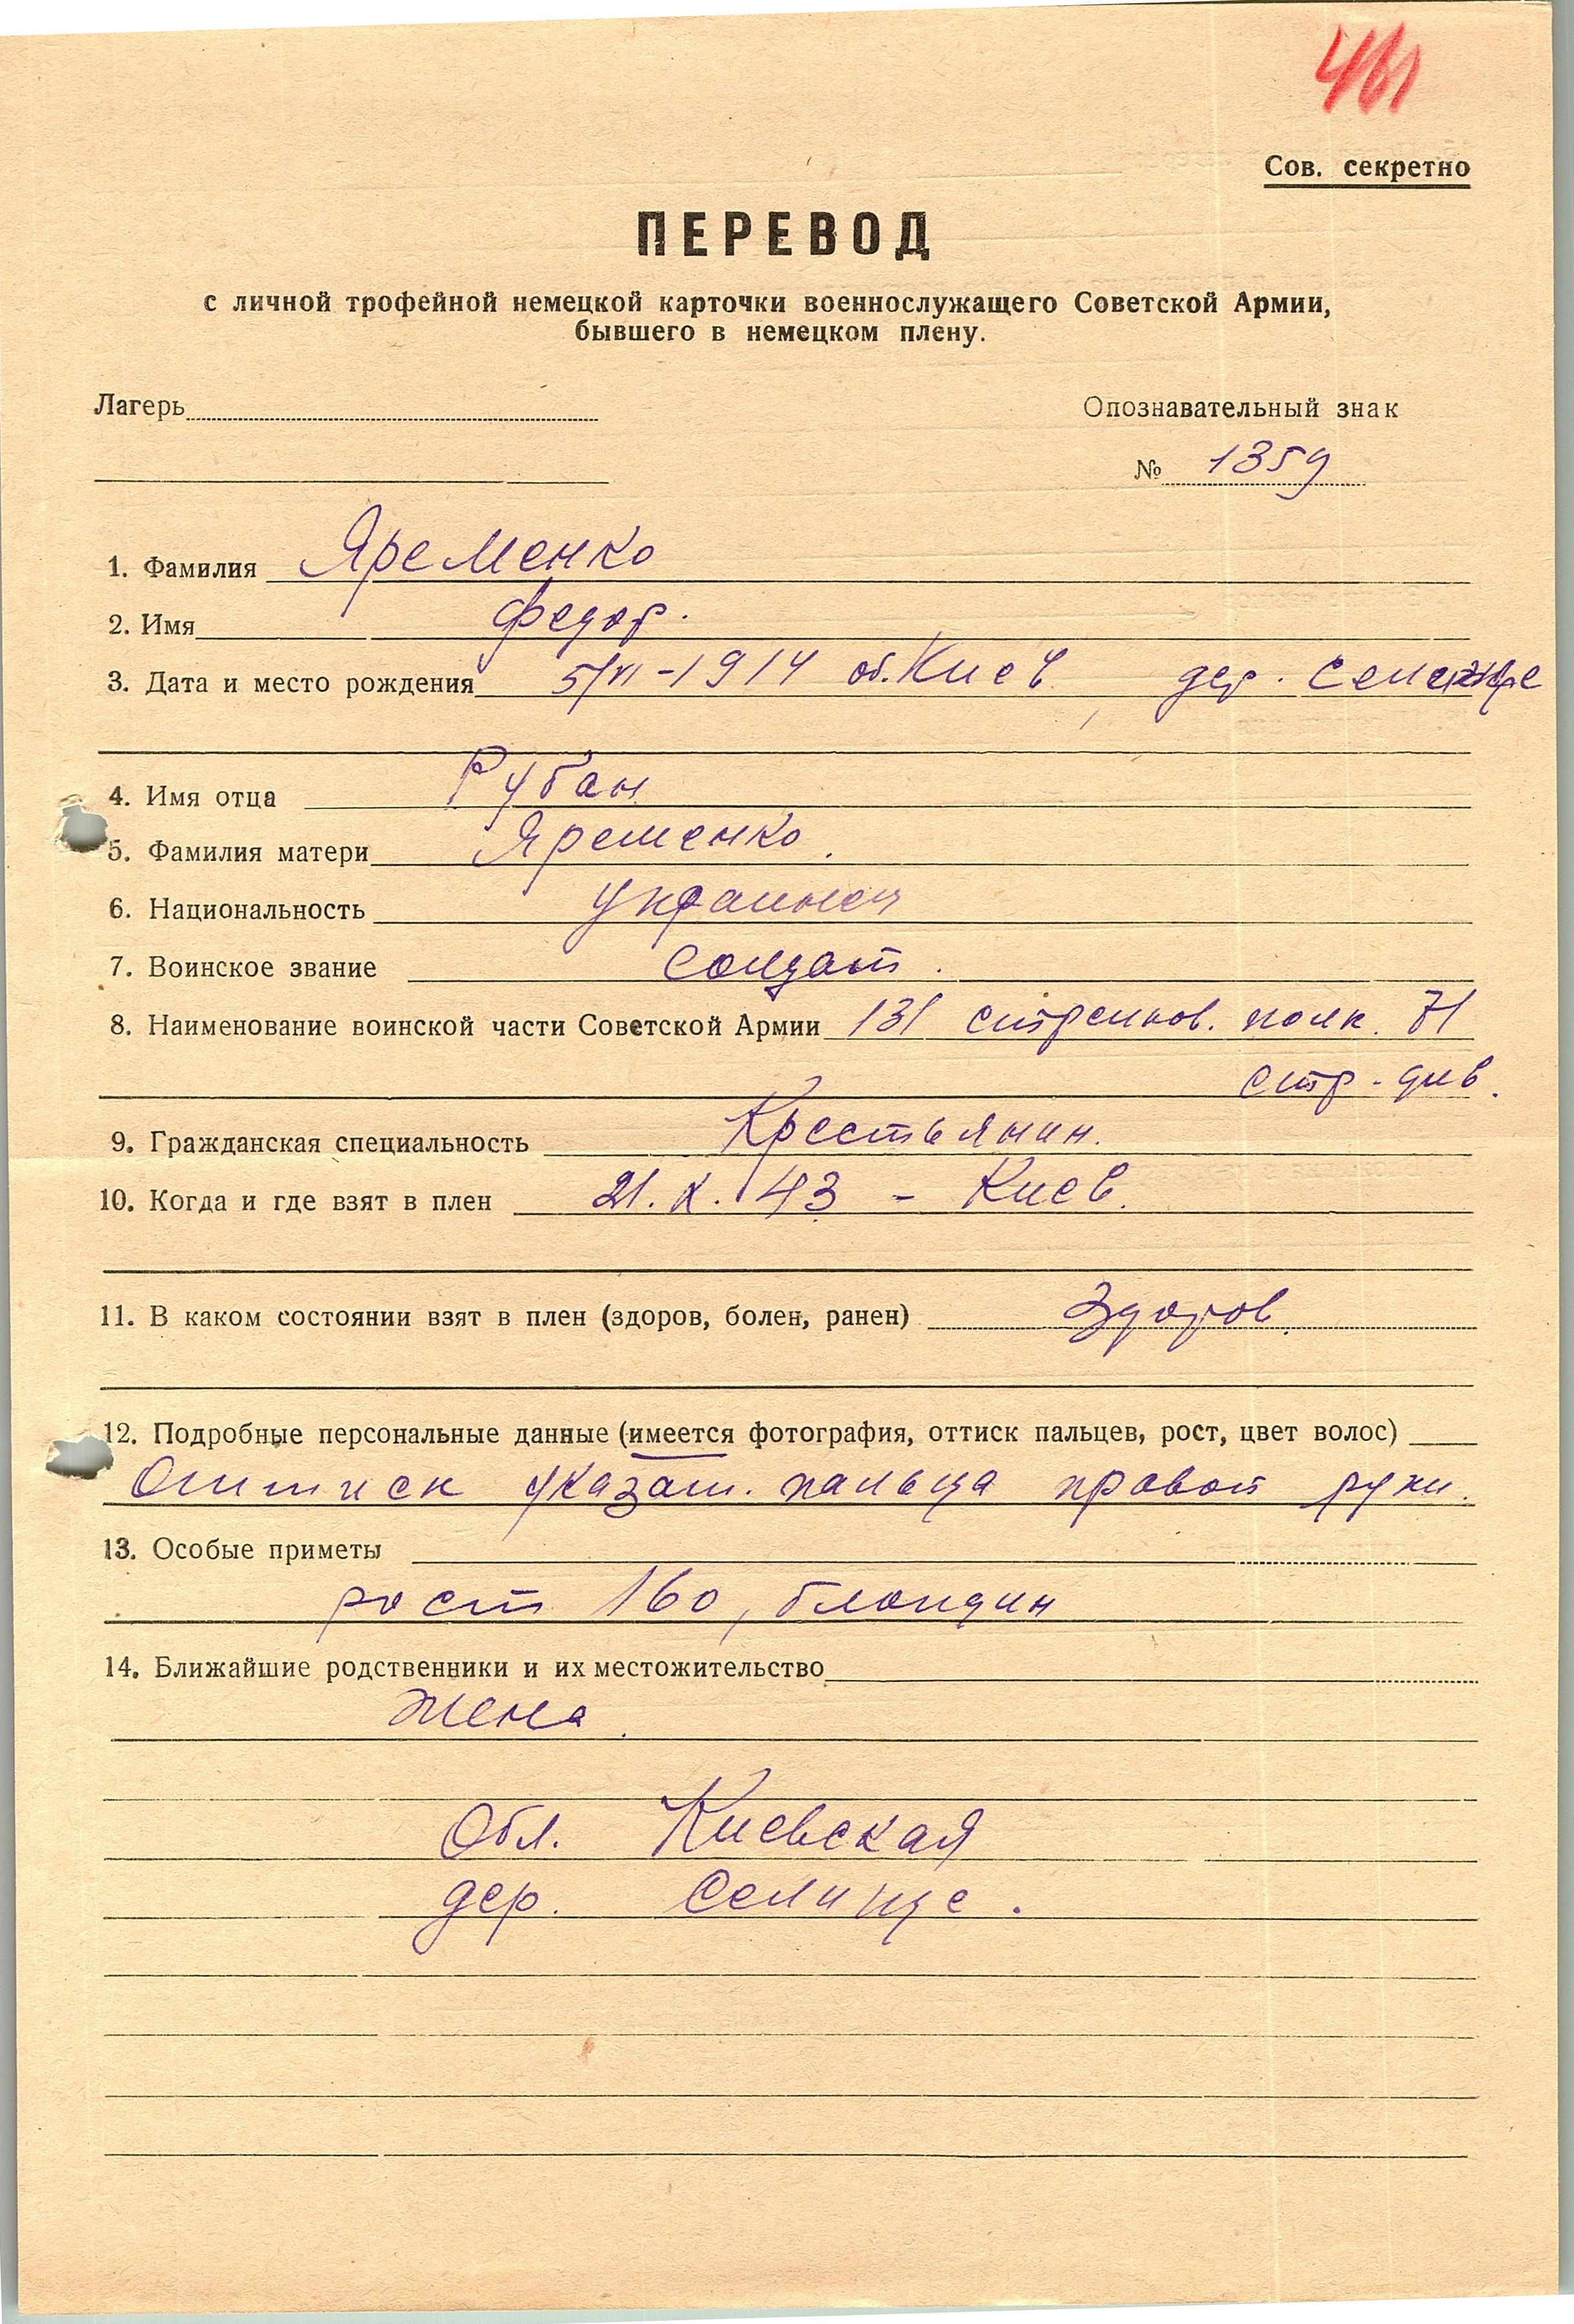 461
Сов. секретно
ПЕРЕВОД
с личной трофейной немецкой карточки военнослужащего Советской Армии,
бывшего в немецком плену.
Лагерь
Опознавательный знак
№ 1359
1. Фамилия Яременко
2. Имя Федор.
3. Дата и место рождения 5/VI-1914 об. Киев, дер.
4. Имя отца Рубан
5. Фамилия матери Яременко.
6. Национальность украинец
7. Воинское звание солдат.
8. Наименование воинской части Советской Армии 131 стрелков. полк. 71
стр. див.
9. Гражданская специальность Крестьянин.
10. Когда и где взят в плен 21.X.43 - Киев.
11. В каком состоянии взят в плен (здоров, болен, ранен) Здоров.
12. Подробные персональные данные (имеется фотография, оттиск пальцев, рост, цвет волос)
Оттиск указат. пальца правой руки.
13. Особые приметы
рост 160, блондин
14. Ближайшие родственники и их местожительство
Жена.
Обл. Киевская
дер. Селище.